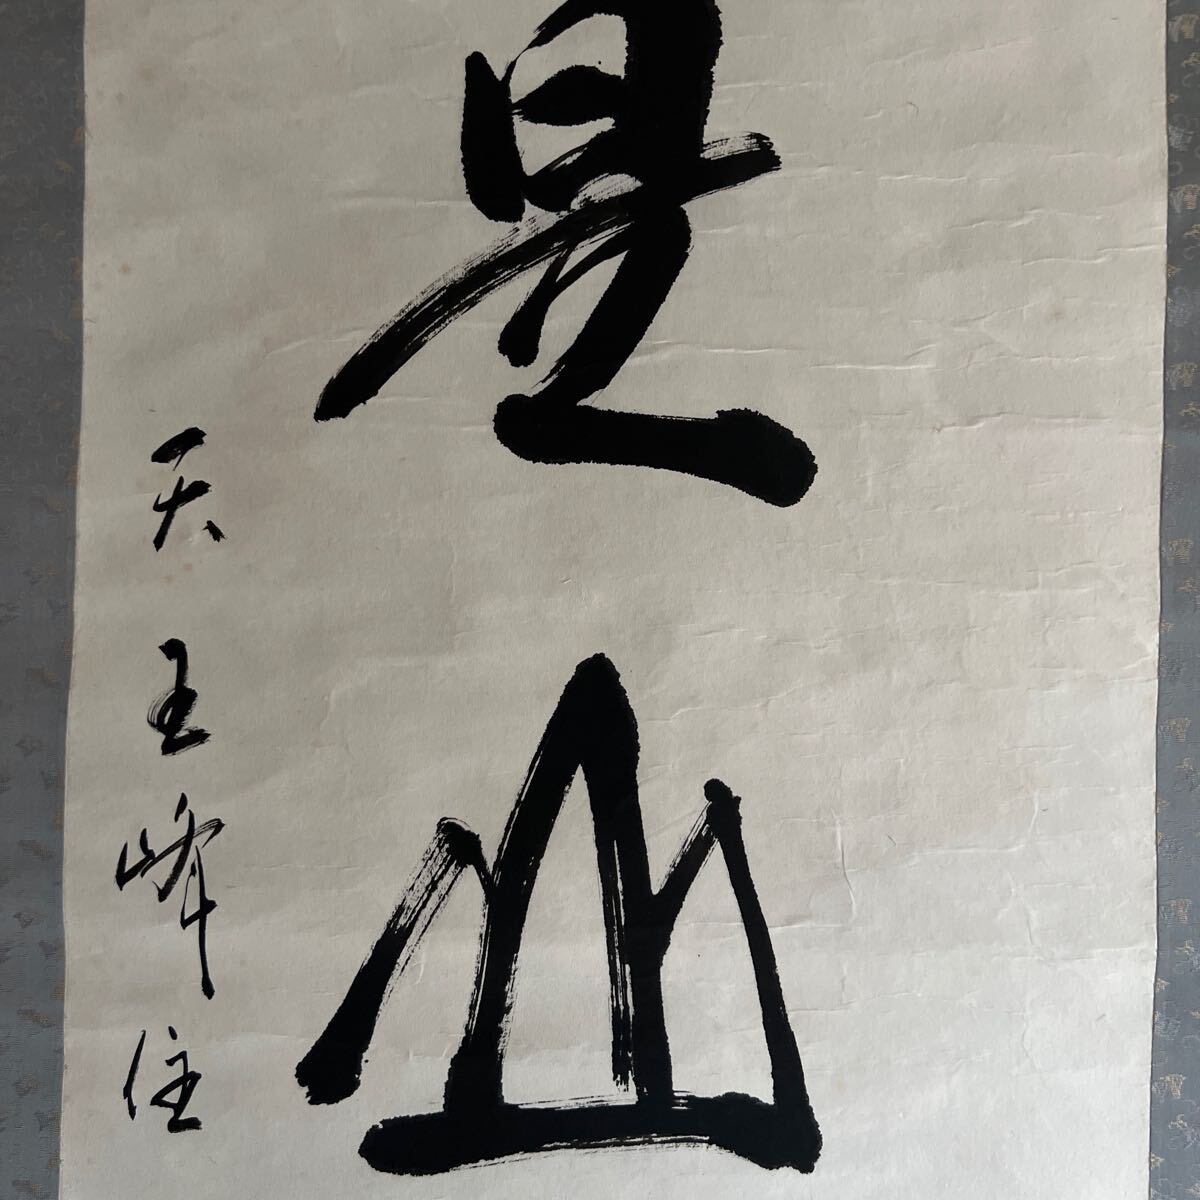 見山
天王峰住